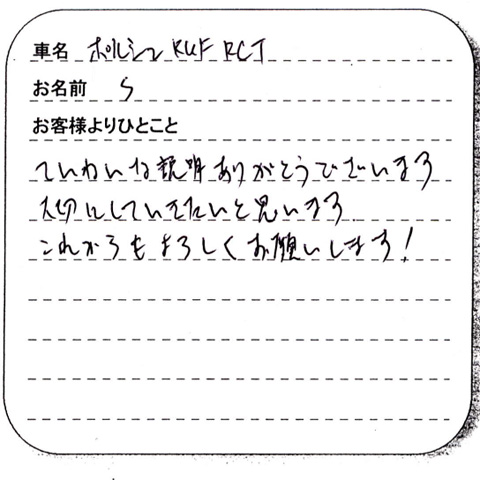 車名 ポルシェ RUF RCT
お名前 S
お客様よりひとこと
ていねいな説明ありがとうございます
大切にしていきたいと思います
これからもよろしくお願いします!